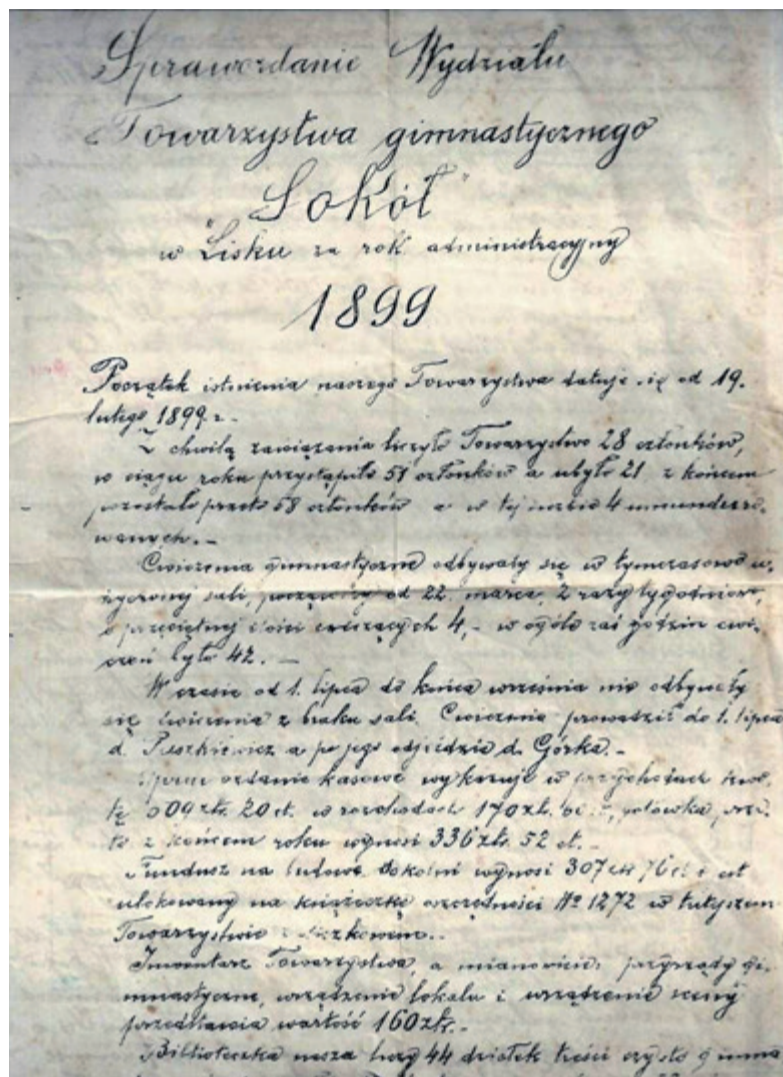 Sprawozdanie Wydziału
Towarzystwa gimnastycznego
"Sokół"
w Lisku za rok administracyjny
1899
Początek istnienia naszego Towarzystwa datuje się od 19.
lutego 1899 r.
Z chwilą zawiązania liczyło Towarzystwo 28 członków,
w ciągu roku przystąpiło 51 członków a ubyło 21, z końcem
pozostało przeto 58 członków a w tej liczbie 4 umunduro-
wanych. -
Ćwiczenia gimnastyczne odbywały się w tymczasowo u-
życzonej sali, począwszy od 22. marca, 2 razy tygodniowo,
o przeciętnej ilości ćwiczących 4, - w ogóle zaś godzin ćwi-
czeń było 42. -
W czasie od 1. lipca do końca września nie odbywały
się ćwiczenia z braku sali. Ćwiczenia prowadził do 1. lipca
d. a po jego odjeździe d. Górka. -
Sprawozdanie kasowe wykazuje w przychodach kwo-
tę 20 ct. w rozchodach 170 zł. gotówka
z końcem roku wynosi 336 zł. 52 ct.
Fundusz na budowę wynosi 307 76 ct i
ulokowany na książeczkę oszczędności № 1272 w tutejszem
Towarzystwie
Inwentarz Towarzystwa, a mianowicie: przyrządy gi-
mnastyczne, urządzenie lokalu i urządzenie sceny
przedstawia wartość 160 zł. -
Biblioteczka nasza liczy 44 dziełek treści czysto gimna